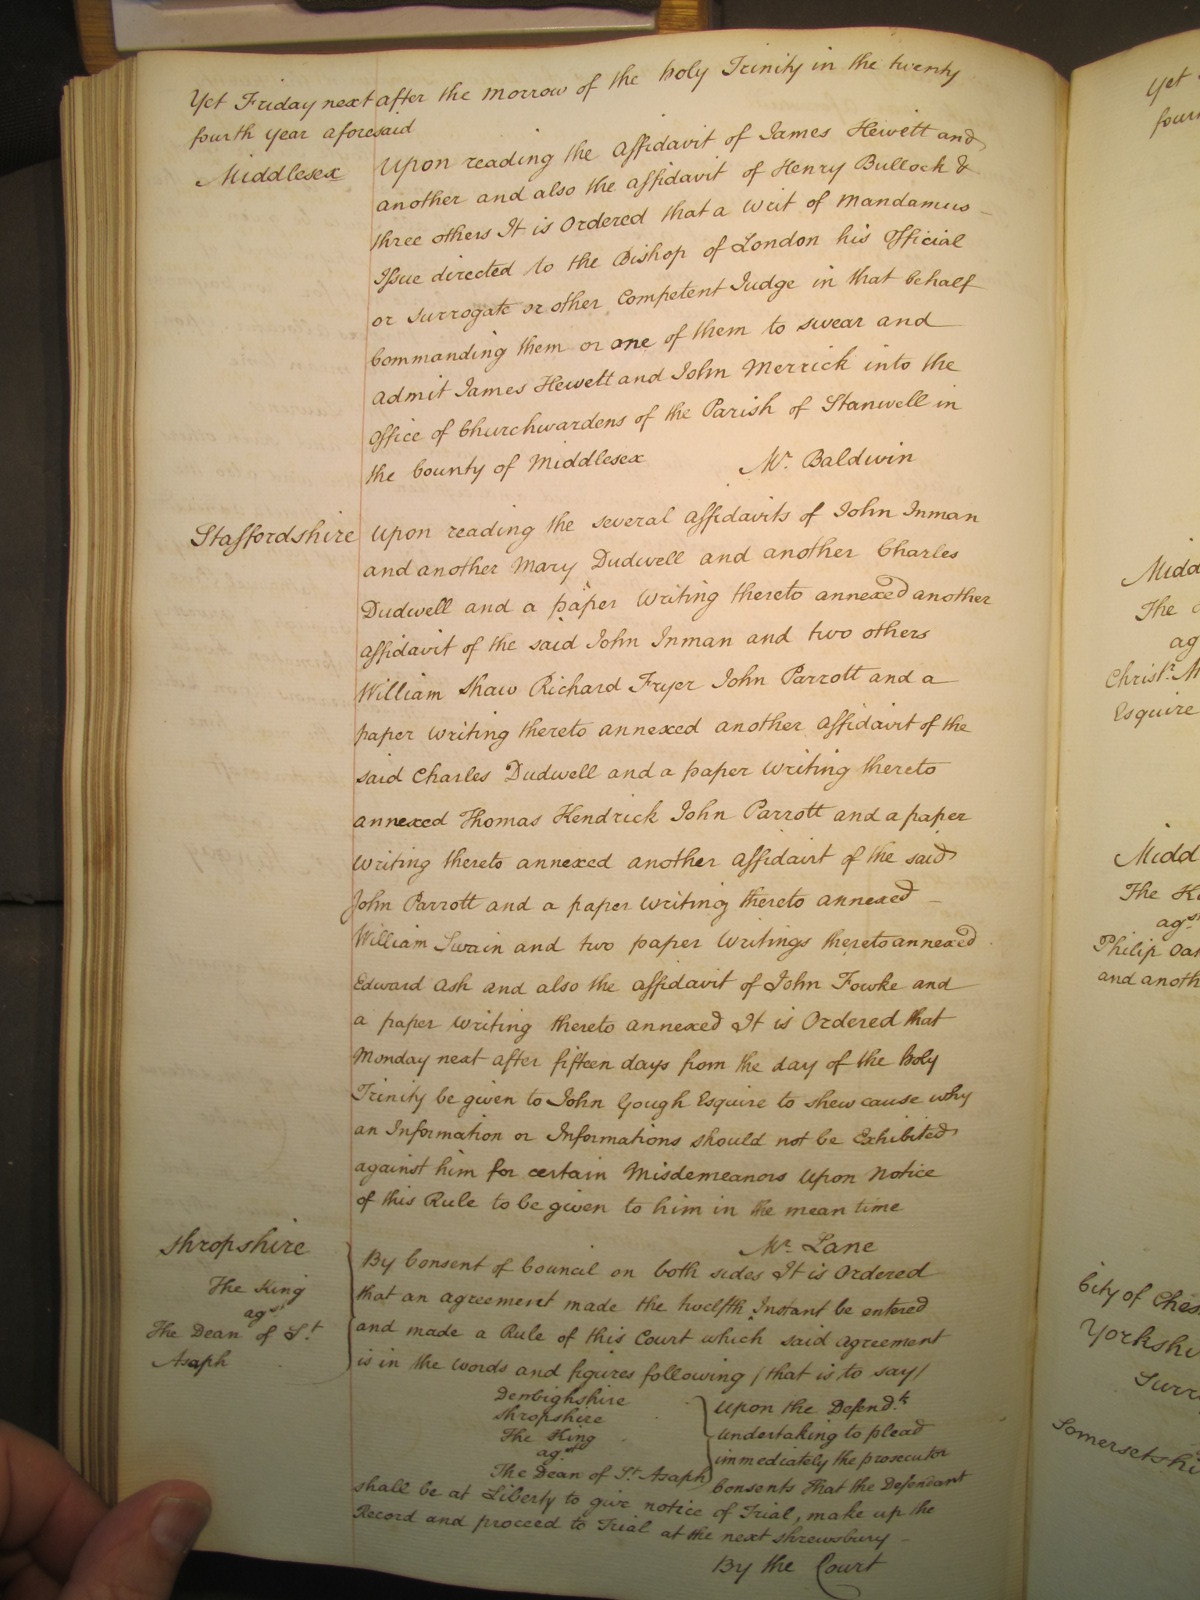 Yet Friday next after the Morrow of the holy Trinity in the twenty
fourth year aforesaid
Middlesex Upon reading the Affidavit of James Hewett and
another and also the affidavit of Henry Bullock &
three others It is Ordered that a Writ of Mandamus
Issue directed to the Bishop of London his Official
or Surrogate or other Competent Judge in that behalf
Commanding them or one of them to swear and
admit James Hewett and John Merrick into the
Office of Churchwardens of the Parish of Stanwell in
the County of Middlesex Mr. Baldwin
Staffordshire Upon reading the several affidavits of John Inman
and another Mary Dudwell and another Charles
Dudwell and a paper Writing thereto annexed another
affidavit of the said John Inman and two others
William Shaw Richard Fryer John Parrott and a
paper writing thereto annexed another affidavit of the
said Charles Dudwell and a paper Writing thereto
annexed Thomas Kendrick John Parrott and a paper
Writing thereto annexed another affidavit of the said
John Parrott and a paper writing thereto annexed
William Swain and two paper Writings thereto annexed
Edward Ash and also the affidavit of John Fowke and
a paper Writing thereto annexed It is Ordered that
Monday next after fifteen days from the day of the holy
Trinity be given to John Gough Esquire to shew cause why
an Information or Informations should not be Exhibited
against him for certain Misdemeanors Upon Notice
of this Rule to be given to him in the mean time
Mr. Lane
Shropshire
The King
agst
The Dean of St.
Asaph
By Consent of Council on both sides It is Ordered
that an agreement made the twelfth Instant be entered
and made a Rule of this Court which said agreement
is in the words and figures following (that is to say)
Denbighshire
Shropshire
The King
agst
The Dean of St. Asaph
Upon the Defend.ts
undertaking to plead
immediately the prosecutor
Consents that the Defendant
shall be at Liberty to give notice of Trial, make up the
Record and proceed to Trial at the next Shrewsbury
By the Court
Yet
four
Midd
The
ag
Christ.r M
Esquire
Midd
The Ki
agst
Philip Oa
and anoth
City of Ches
Yorkshi
Surr
Somersetshi